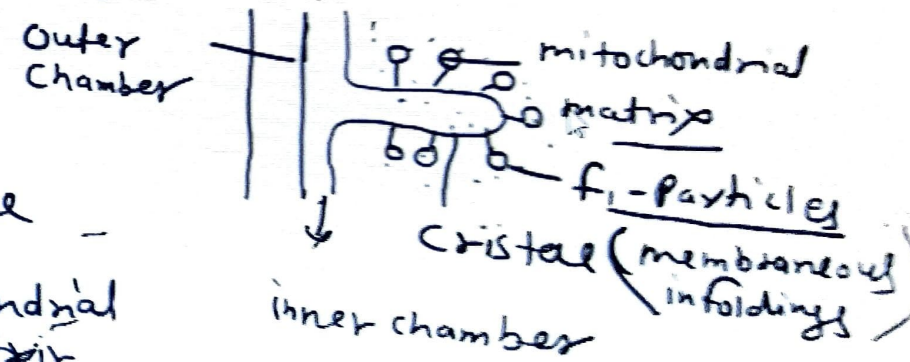 outer
Chamber
mitochondrial
matrix
f1-Particles
e
Cristae (membraneous
infoldings)
ndrial
inner chamber